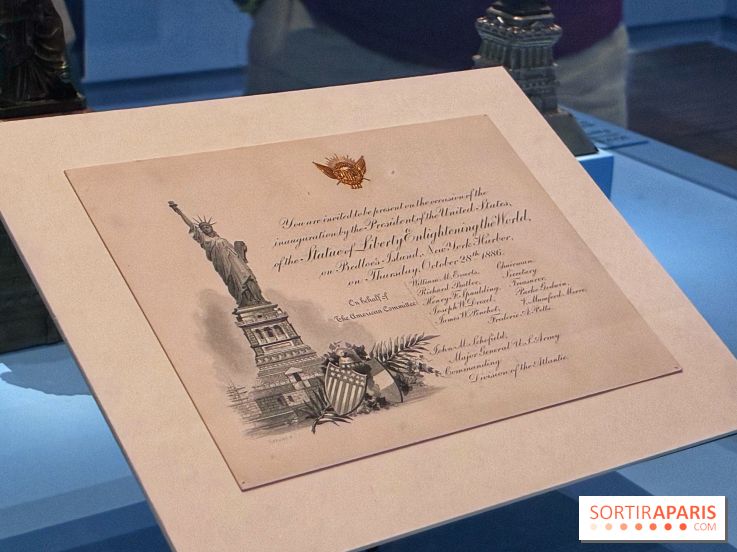 You are invited to be present on the occasion of the
inauguration by the President of the United States,
of the Statue of Liberty Enlightening the World,
on Bedloe's Island, New York Harbor,
on Thursday, October 28th 1886.
On behalf of
The American Committee
William M. Evarts, Chairman
Richard Butler, Secretary
Henry F. Spaulding, Treasurer
Joseph W. Drexel, Parke Godwin,
James W. Pinchot, V. Mumford Moore,
Frederic A. Potts.
John M. Schofield,
Major General U.S. Army
Commanding
Division of the Atlantic.
SORTIRAPARIS
.COM